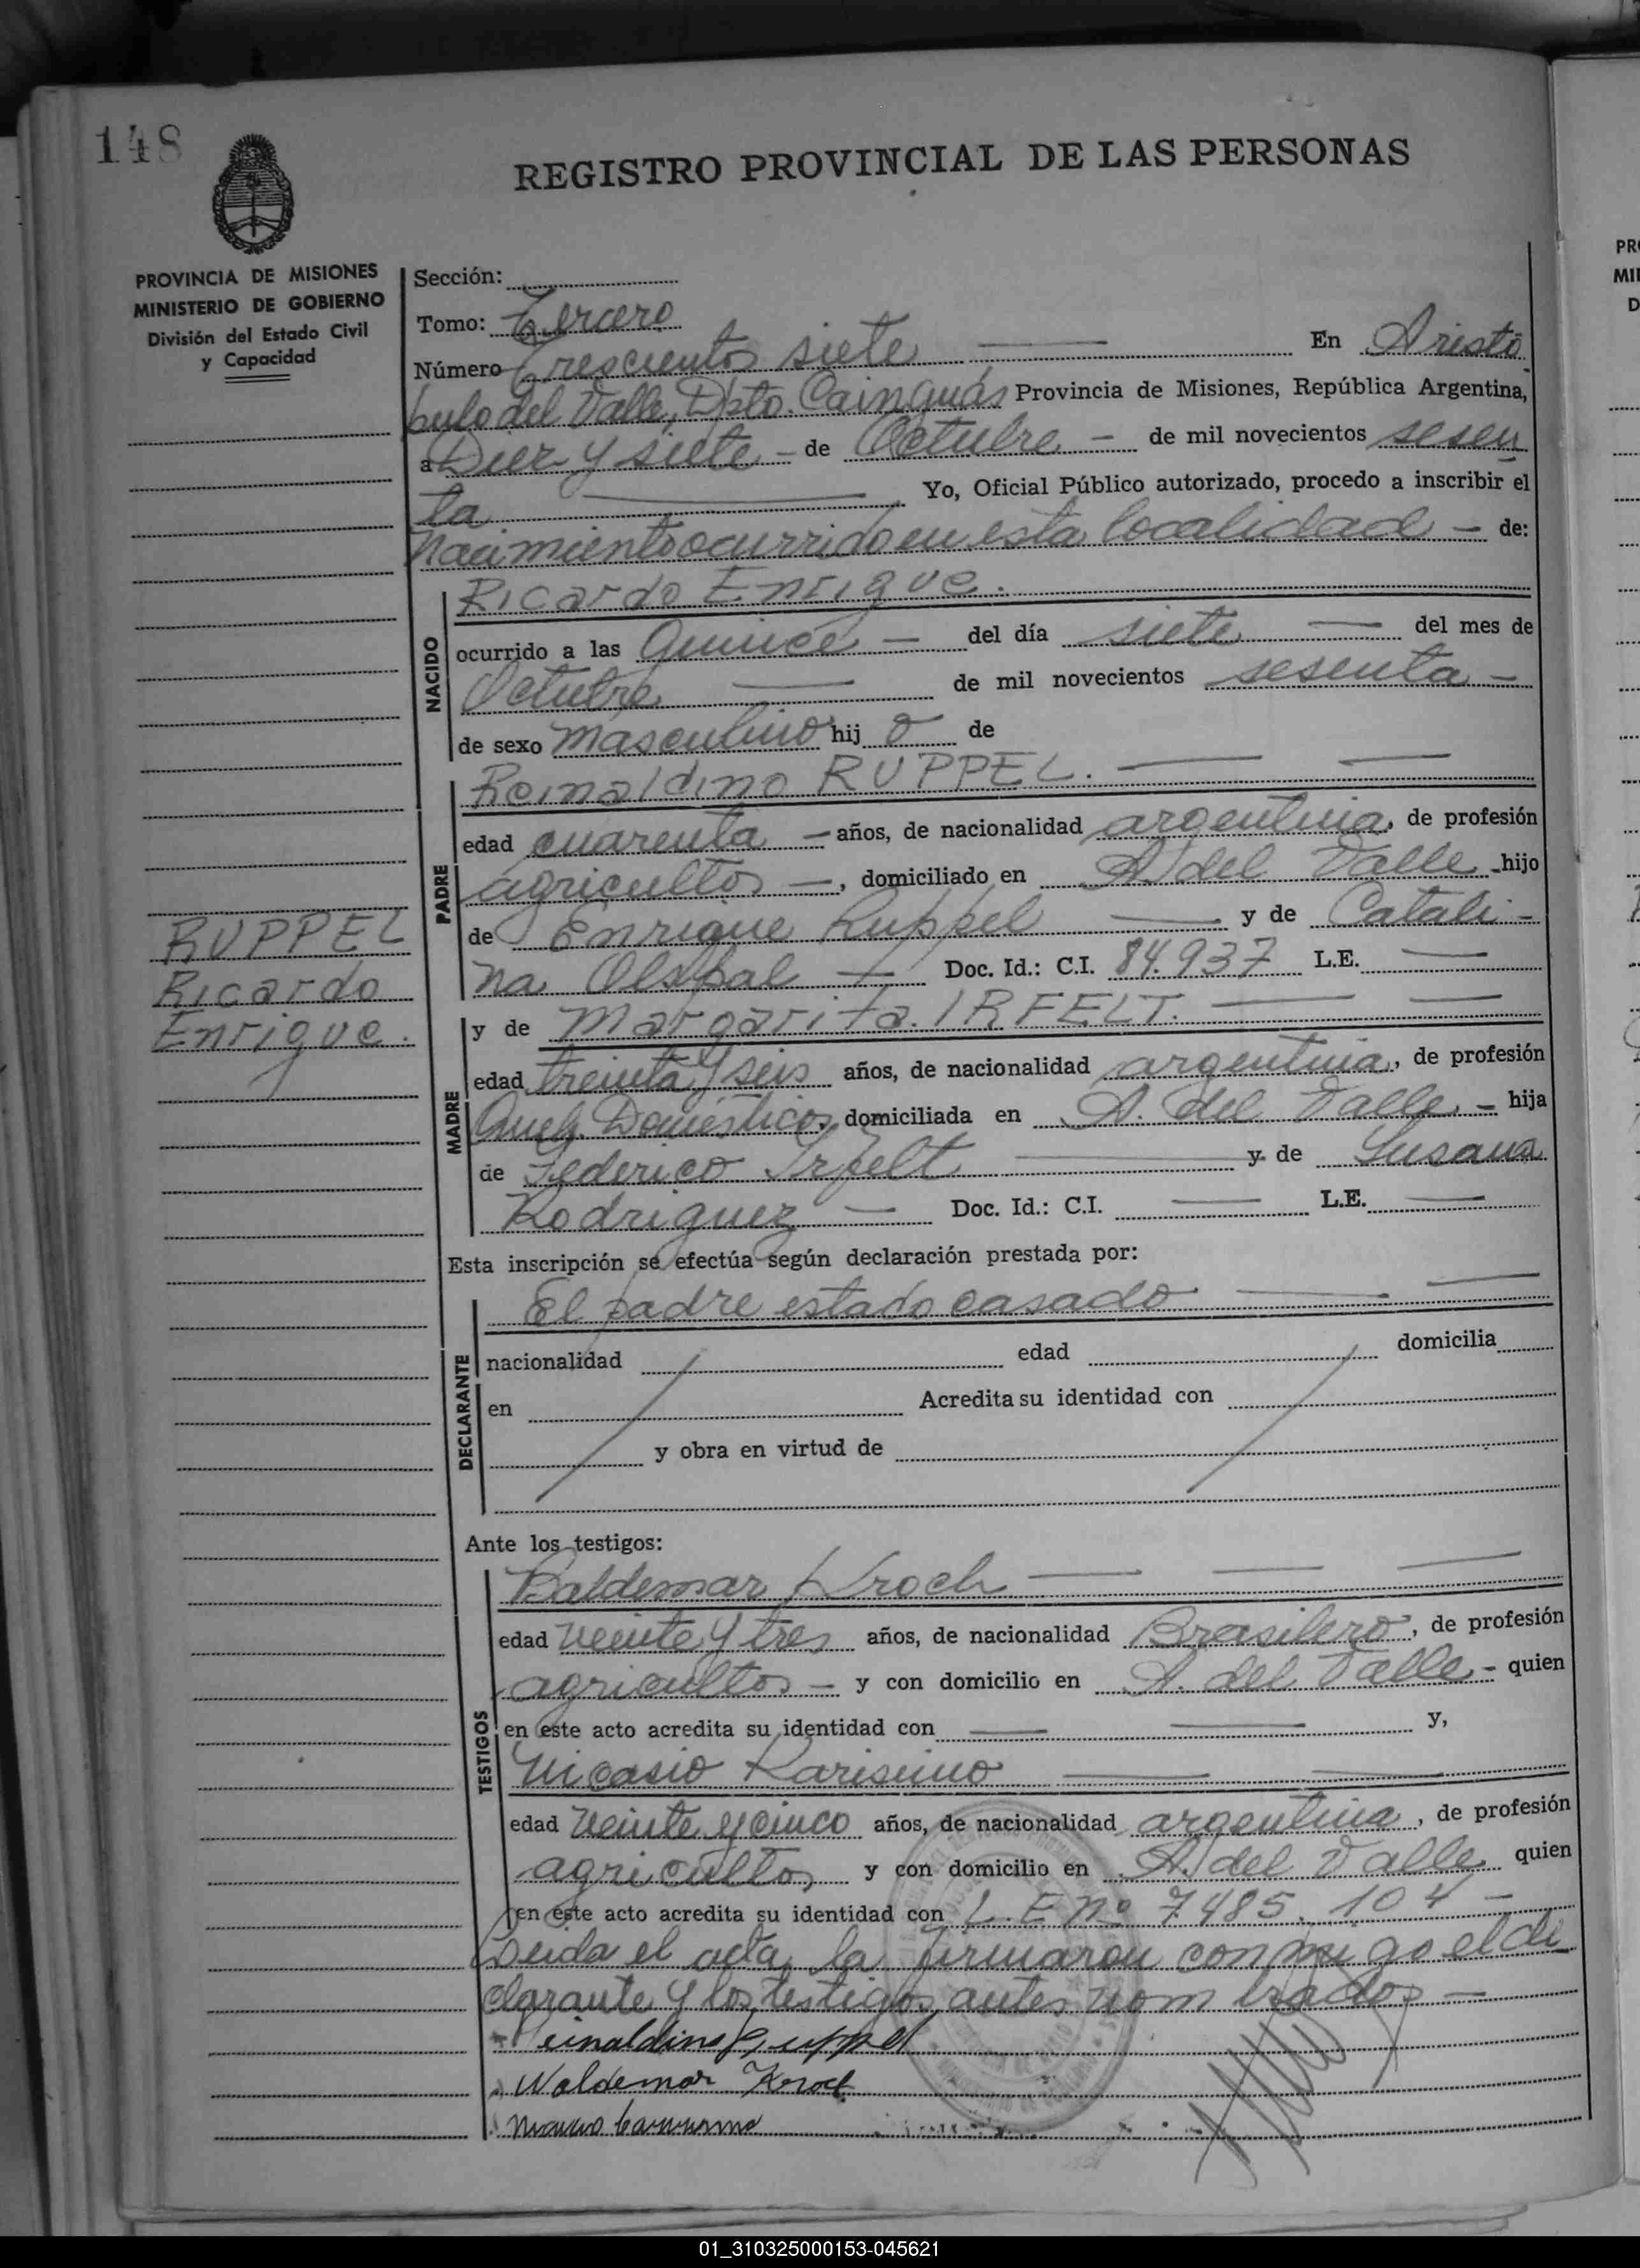 148
REGISTRO PROVINCIAL DE LAS PERSONAS
PROVINCIA DE MISIONES
MINISTERIO DE GOBIERNO
División del Estado Civil
y Capacidad
Sección:
Tomo: Tercero
Número Trescientos siete En Aristó
bulo del Valle, Dpto. Cainguás Provincia de Misiones, República Argentina,
a Diez y siete - de Octubre - de mil novecientos sesen
ta Yo, Oficial Público autorizado, procedo a inscribir el
nacimiento ocurrido en esta localidad - de:
NACIDO
Ricardo Enrique.
ocurrido a las Quince - del día siete - del mes de
Octubre - de mil novecientos sesenta -
de sexo masculino hij o de
PADRE
Reinaldino RUPPEL.
edad cuarenta - años, de nacionalidad argentina, de profesión
agricultor -, domiciliado en A. del Valle - hijo
de Enrique Ruppel y de Catali-
na Doc. Id.: C.I. 84.937 L.E. -
RUPPEL
Ricardo
Enrique.
MADRE
y de Margarita IRFELT.
edad treinta y seis años, de nacionalidad argentina, de profesión
Queh. Domésticos, domiciliada en A. del Valle - hija
de Federico Irfelt y de Susana
Rodriguez - Doc. Id.: C.I. - L.E. -
Esta inscripción se efectúa según declaración prestada por:
DECLARANTE
El padre estado casado
nacionalidad edad domicilia
en Acredita su identidad con
y obra en virtud de
Ante los testigos:
TESTIGOS
Baldemar Kroch
edad veinte y tres años, de nacionalidad Brasilero, de profesión
agricultor - y con domicilio en A. del Valle - quien
en este acto acredita su identidad con y,
Nicasio Karisimo
edad veinte y cinco años, de nacionalidad argentina, de profesión
agricultor y con domicilio en A. del Valle quien
en este acto acredita su identidad con L.E Nº 7485.104 -
Leida el acta, la firmaron conmigo el de
clarante y los testigos antes nombrados -
Reinaldino Ruppel
Waldemar Kroch
01_310325000153-045621